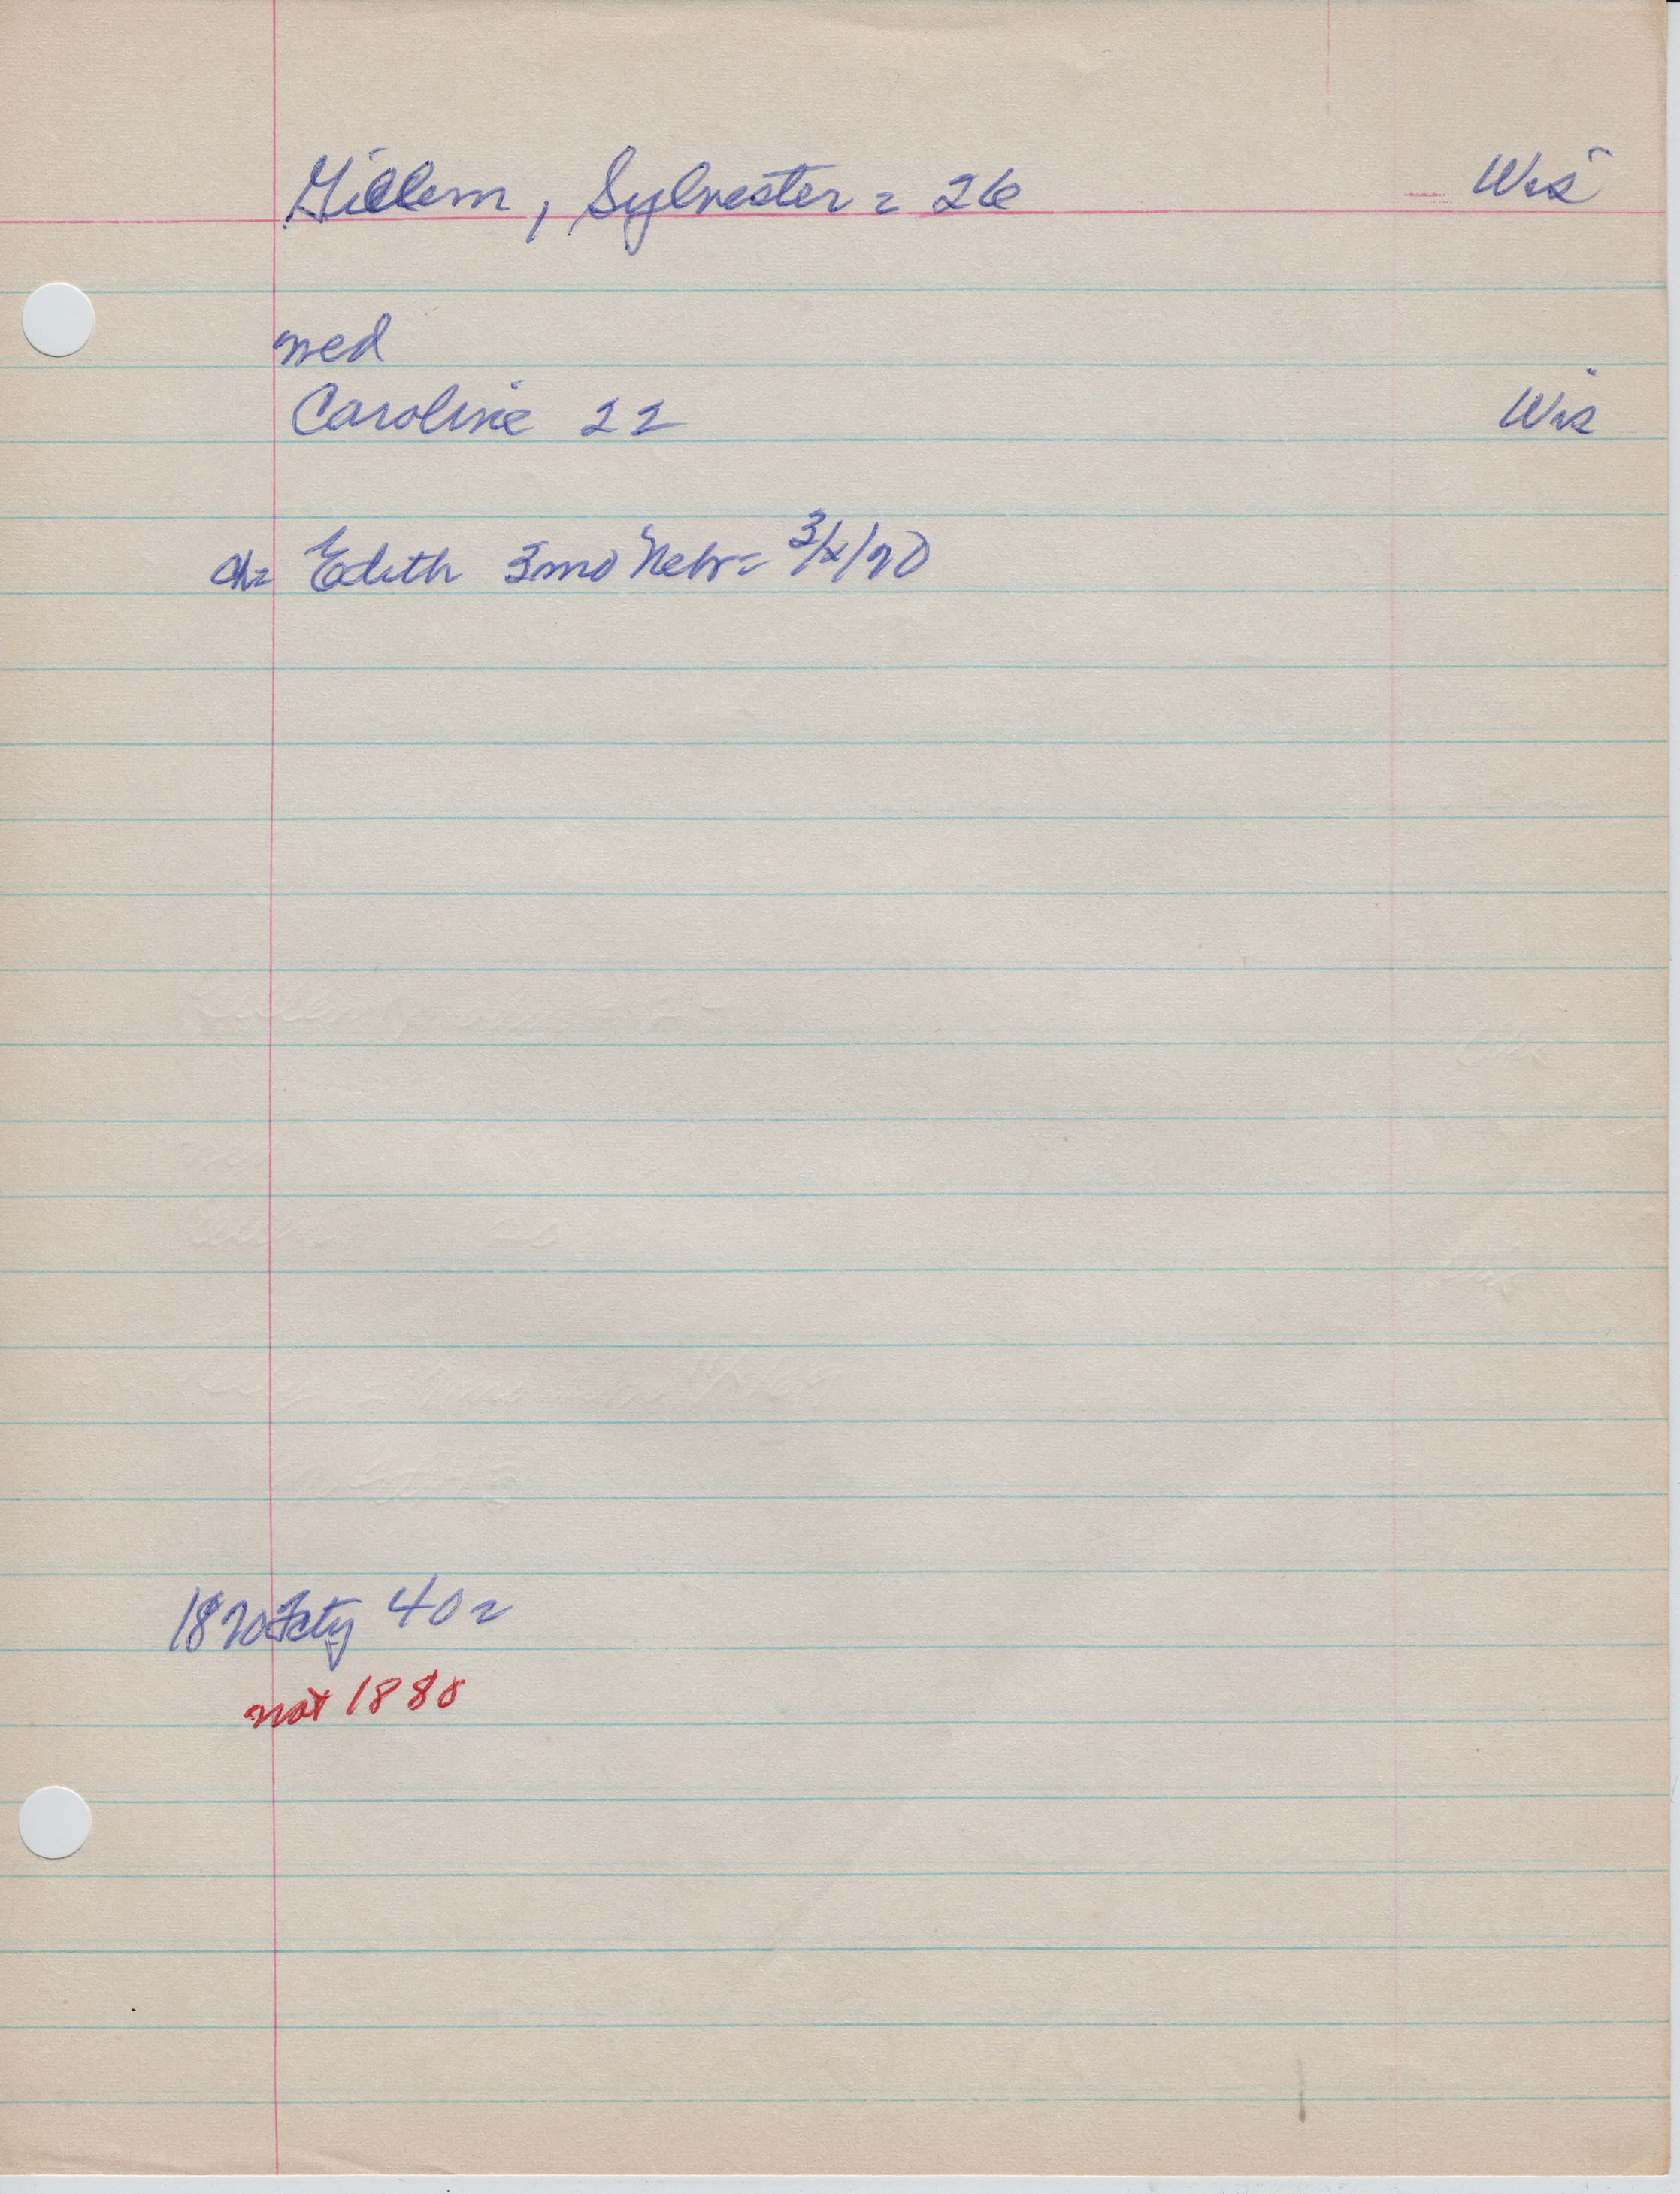 Gillem, Sylvester = 26 Wis
med
Caroline 22 Wis
ch= Edith 3mo Nebr= 3/x/70
1870 Fcty 402
not 1880